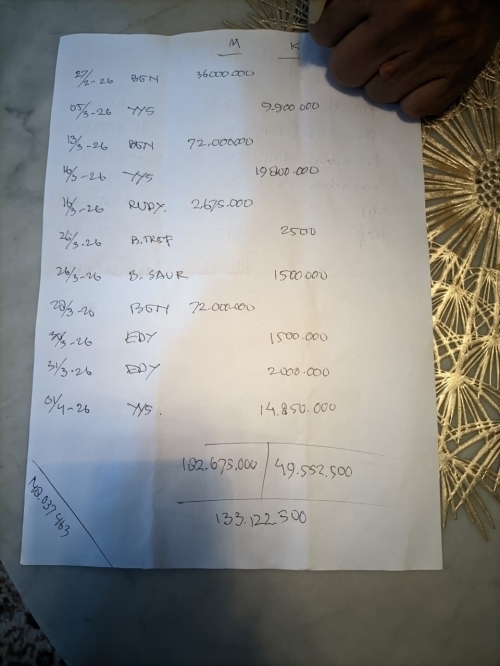 M K
27/2-26 BGN 36000.000
05/3-26 YYS 9.900.000
13/3-26 BGN 72.000000
16/3-26 YYS 19800.000
16/3-26 RUDY. 2675.000
25/3-26 B.TRSF 2500
26/3-26 B. SAUR 1500.000
28/3-26 BGN 72.000.000
30/3-26 EDY 1500.000
31/3-26 EDY 2000.000
01/4-26 YYS. 14.850.000
182.675.000 49.552.500
133.122.500